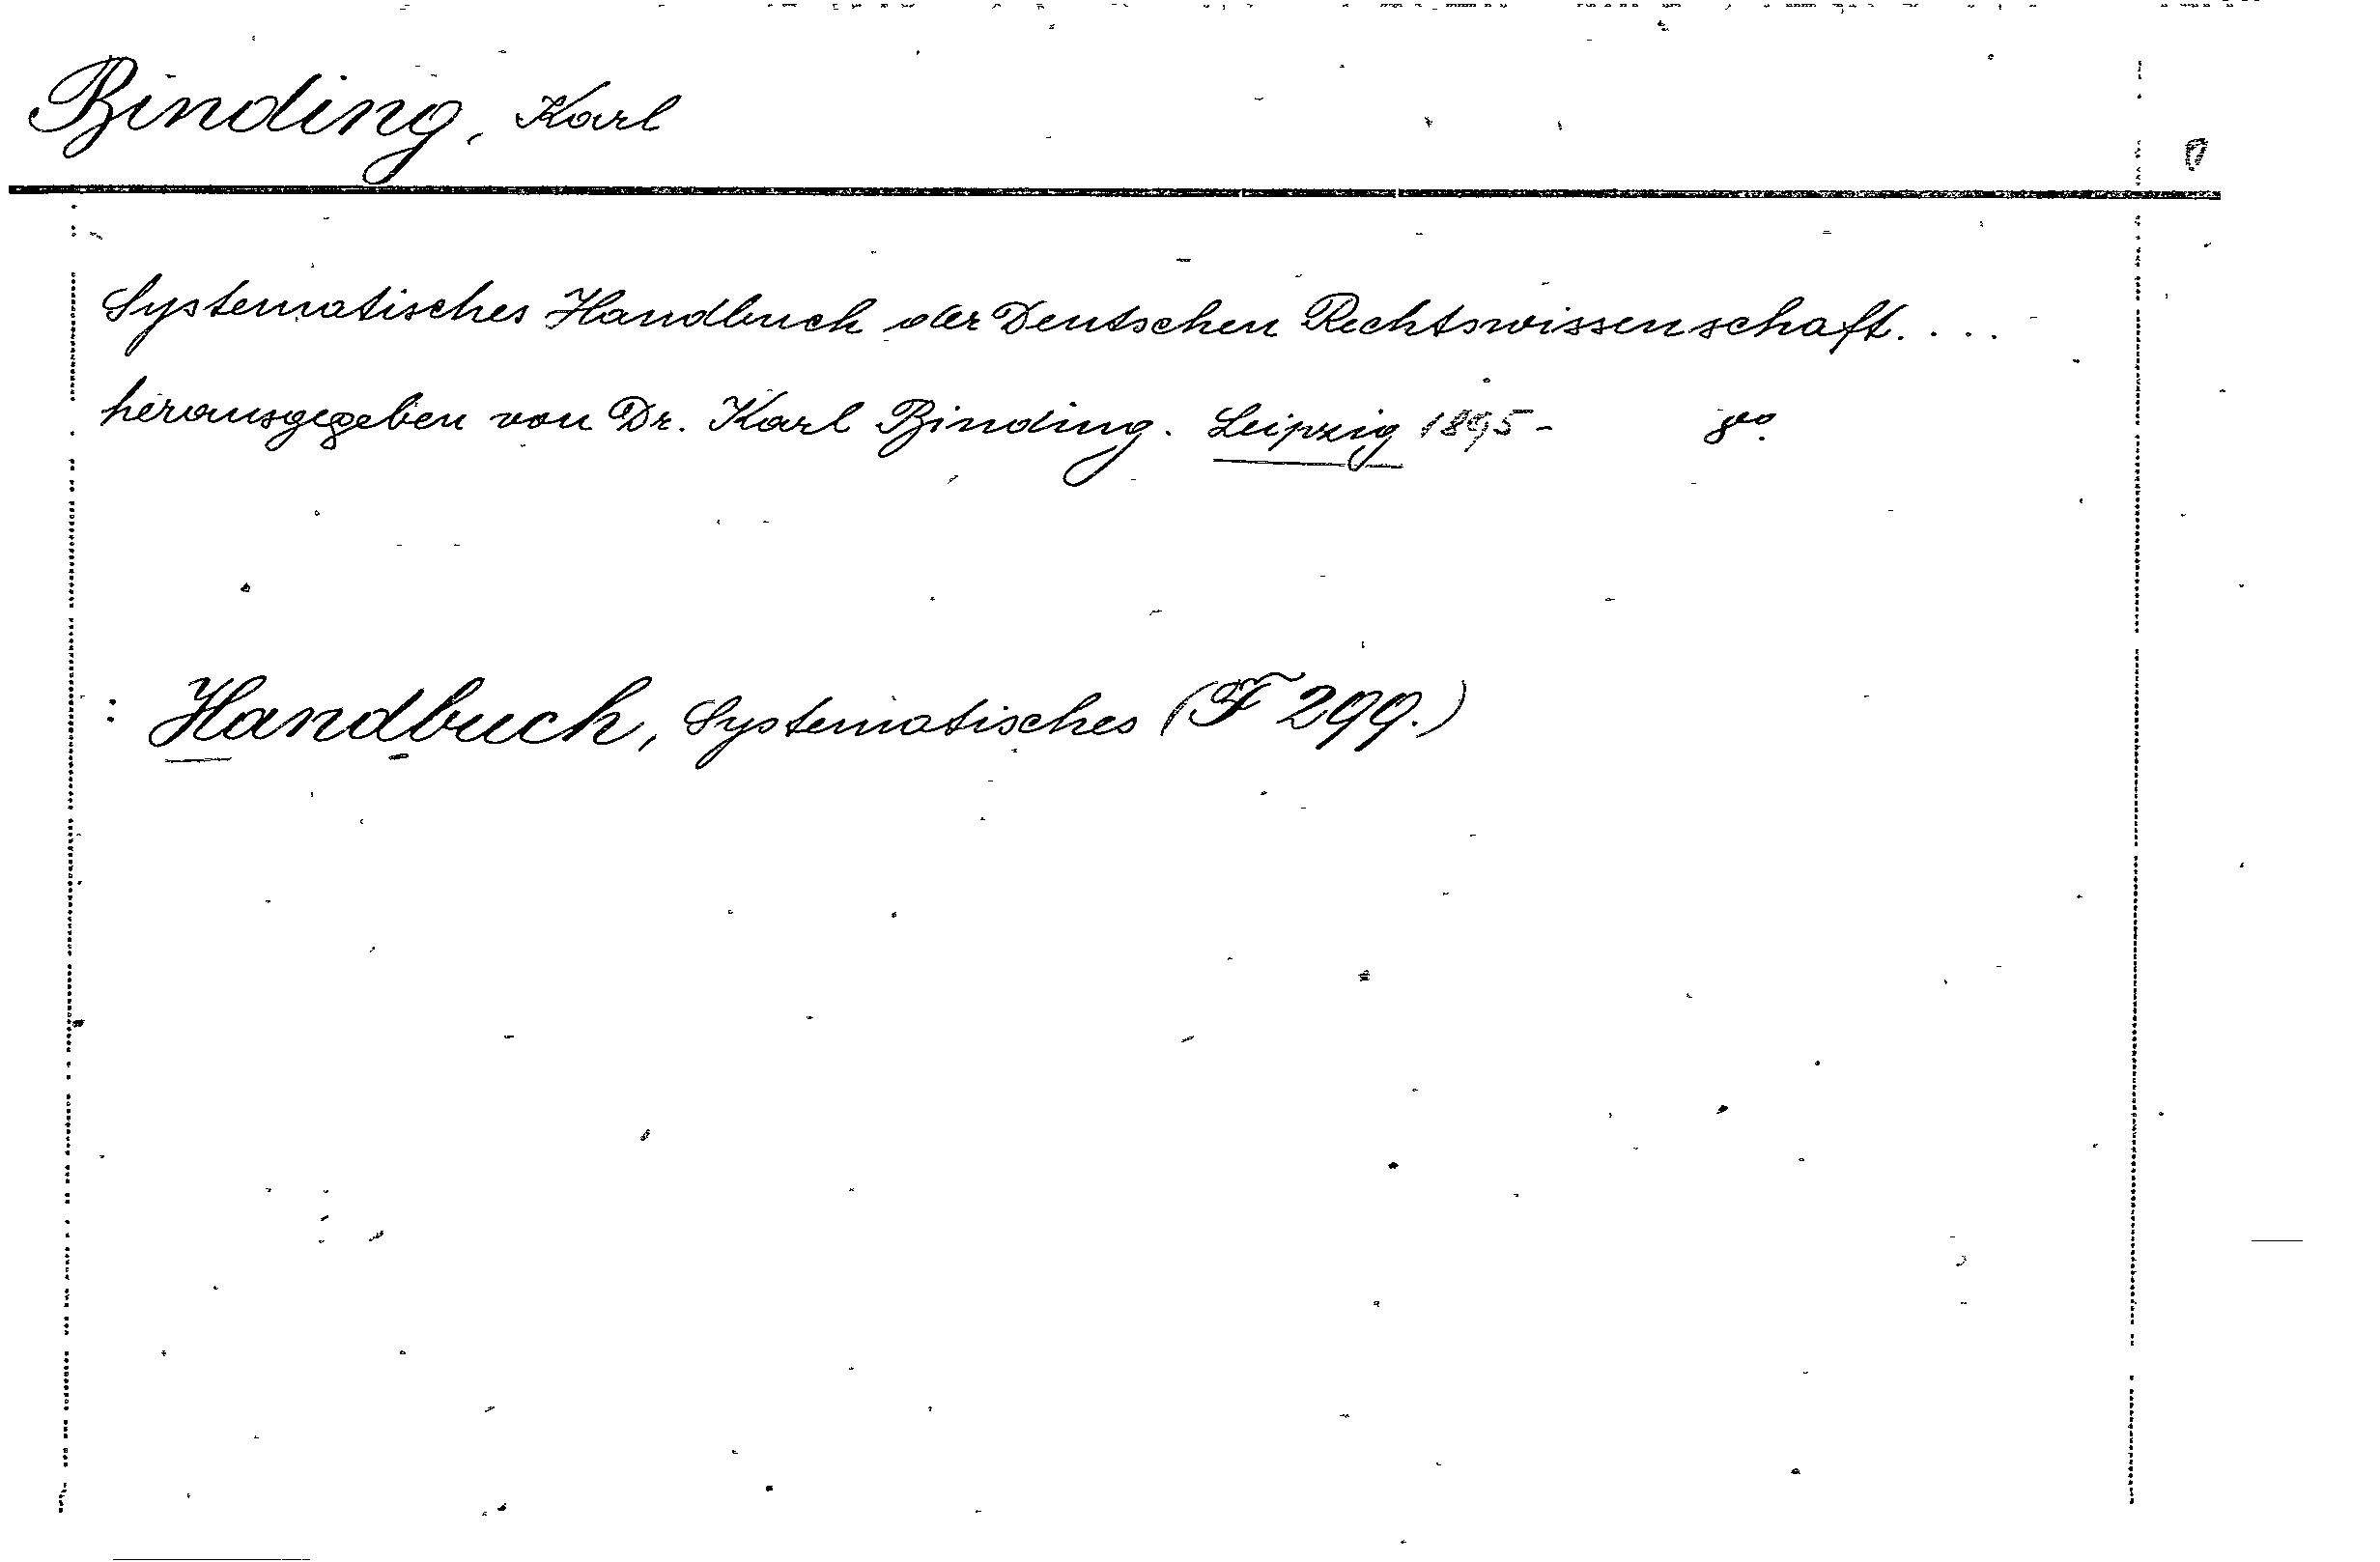 Binding, Karl
Systematisches Handbuch der Deutschen Rechtswissenschaft. ...
herausgegeben von Dr. Karl Binding. Leipzig 1895- 8vo.
: Handbuch, Systematisches (F 299.)